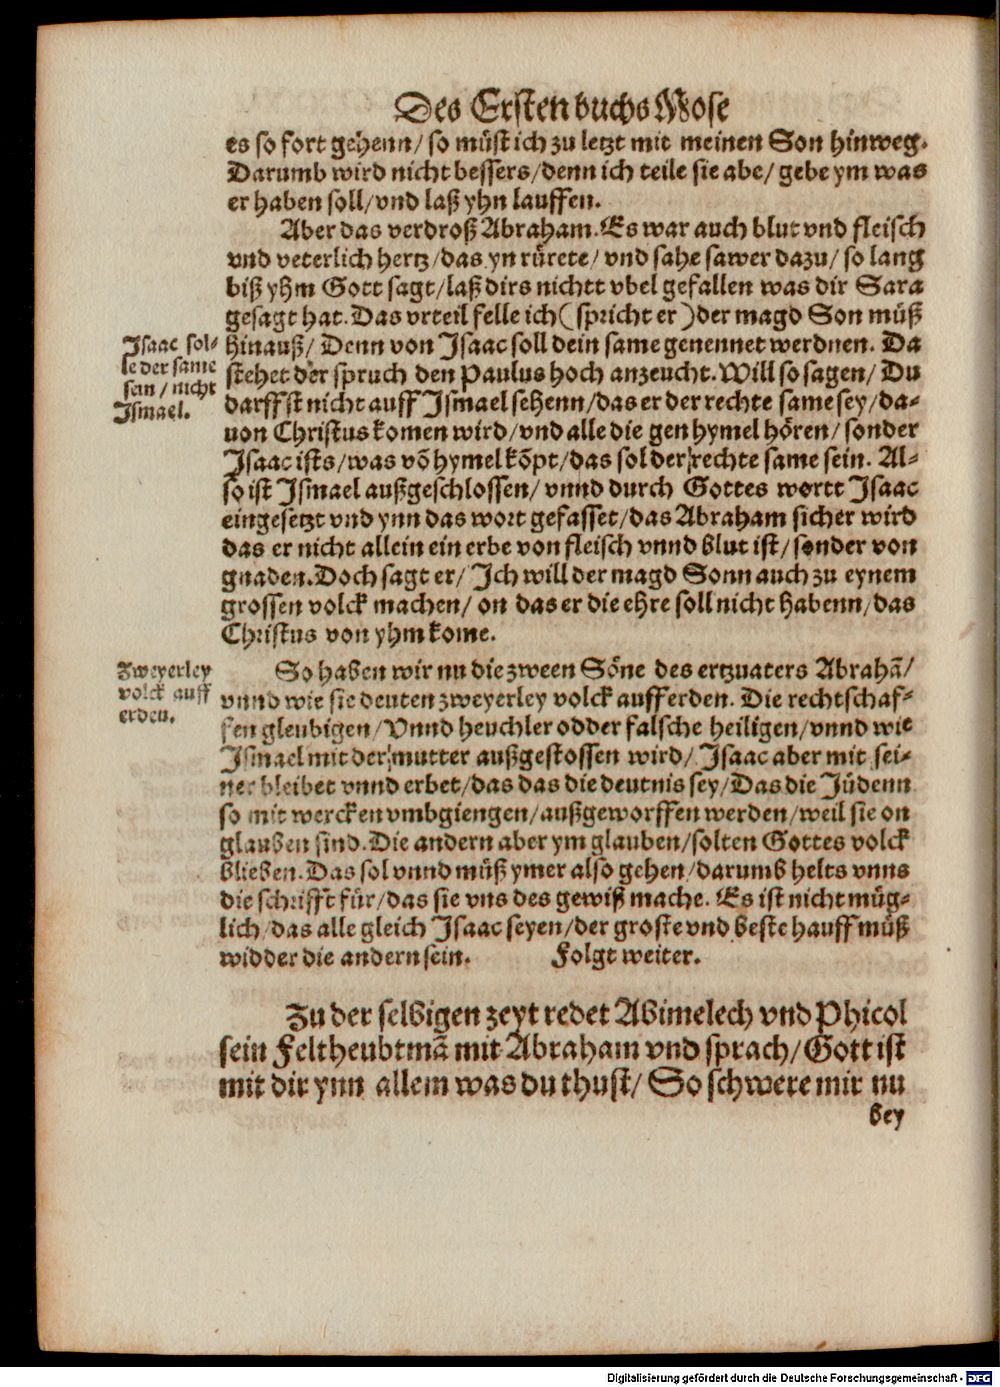 Des Ersten buchs Mose
es so fort gehenn/ so müst ich zu letzt mit meinen Son hinweg.
Darumb wird nicht bessers/ denn ich teile sie abe/ gebe ym was
er haben soll/ vnd laß yhn lauffen.
Aber das verdroß Abraham. Es war auch blut vnd fleisch
vnd veterlich hertz/ das yn rürete/ vnd sahe sawer dazu/ so lang
biß yhm Gott sagt/ laß dirs nichtt vbel gefallen was dir Sara
gesagt hat. Das vrteil felle ich (spricht er) der magd Son müß
hinauß/ Denn von Isaac soll dein same genennet werdnen. Da
stehet der spruch den Paulus hoch anzeucht. Will so sagen/ Du
darffst nicht auff Ismael sehenn/ das er der rechte same sey/ da-
uon Christus komen wird/ vnd alle die gen hymel hören/ sonder
Isaac ists/ was võ hymel kõpt/ das sol der rechte same sein. Al-
so ist Ismael außgeschlossen/ vnnd durch Gottes wortt Isaac
eingesetzt vnd ynn das wort gefasset/ das Abraham sicher wird
das er nicht allein ein erbe von fleisch vnnd blut ist/ sonder von
gnaden. Doch sagt er/ Ich will der magd Sonn auch zu eynem
grossen volck machen/ on das er die ehre soll nicht habenn/ das
Christus von yhm kome.
Isaac sol-
le der same
sein/ nicht
Ismael.
So haben wir nu die zween Söne des ertzuaters Abrahã/
vnnd wie sie deuten zweyerley volck aufferden. Die rechtschaf-
fen gleubigen/ Vnnd heuchler odder falsche heiligen/ vnnd wie
Ismael mit der mutter außgestossen wird/ Isaac aber mit sei-
ner bleibet vnnd erbet/ das das die deutnis sey/ Das die Jüdenn
so mit wercken vmbgiengen/ außgeworffen werden/ weil sie on
glauben sind. Die andern aber ym glauben/ solten Gottes volck
blieben. Das sol vnnd müß ymer also gehen/ darumb helts vnns
die schrifft für/ das sie vns des gewiß mache. Es ist nicht müg-
lich/ das alle gleich Isaac seyen/ der groste vnd beste hauff müß
widder die andern sein. Folgt weiter.
Zweyerley
volck auff
erden.
Zu der selbigen zeyt redet Abimelech vnd Phicol
sein Feltheubtmã mit Abraham vnd sprach/ Gott ist
mit dir ynn allem was du thust/ So schwere mir nu
bey
Digitalisierung gefördert durch die Deutsche Forschungsgemeinschaft - DFG